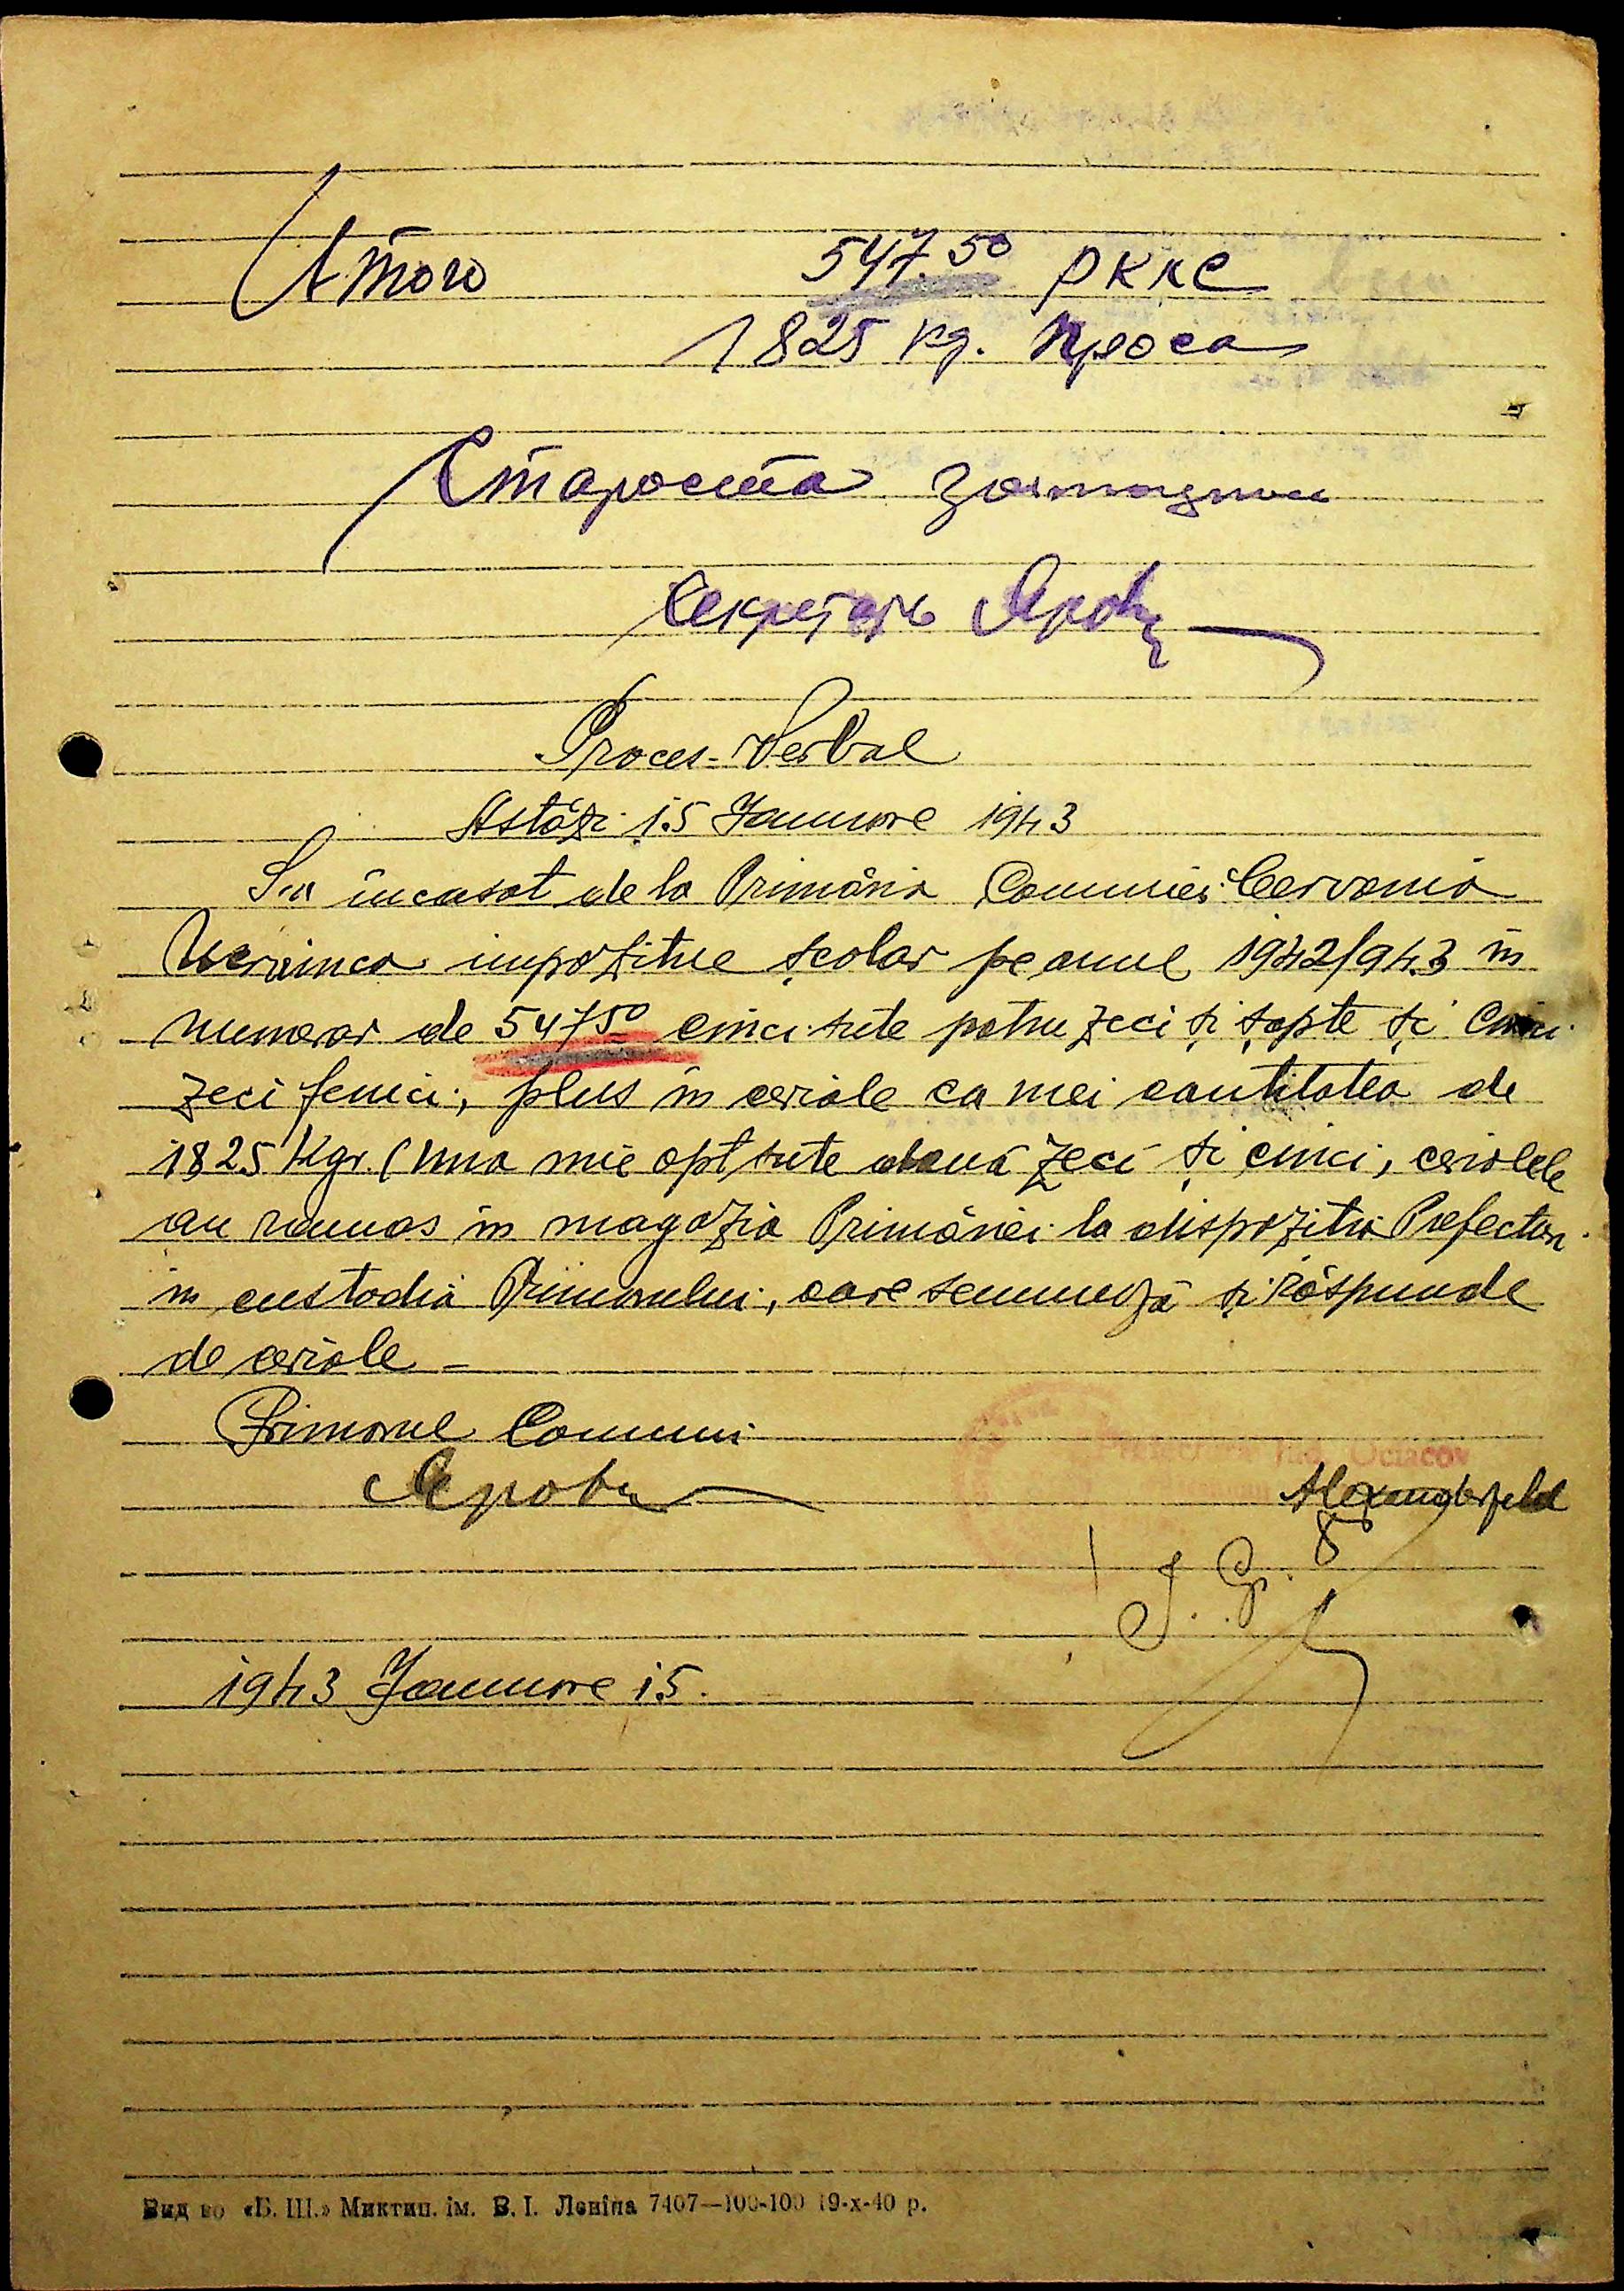 Итого 547.50 РККС
1825 кg. проса
Староста
Секретарь
Proces-Verbal
Astăzi 15 Januare 1943
S'a incasat de la Primăria Comunei Cervonia
Ucrainca impozitue școlar pe anul 1942/943 în
numerar de 547 50 cinci sute patru zeci și șapte și cinci
zeci fenici, plus în ceriale ca mei cantitatea de
1825 Kgr. (una mie opt sute două zeci și cinci, cerialele
au ramas în magazia Primăriei la dispoziția Prefecturi
în custodia Primarului, care semnează și răspunde
de ceriale -
Primarul Comuni
Alexanderfeld
J. G. 8
1943 Januare 15.
Вид во «Б. Ш.» Миктип. ім. В. І. Леніна 7407—100-100 19-х-40 р.